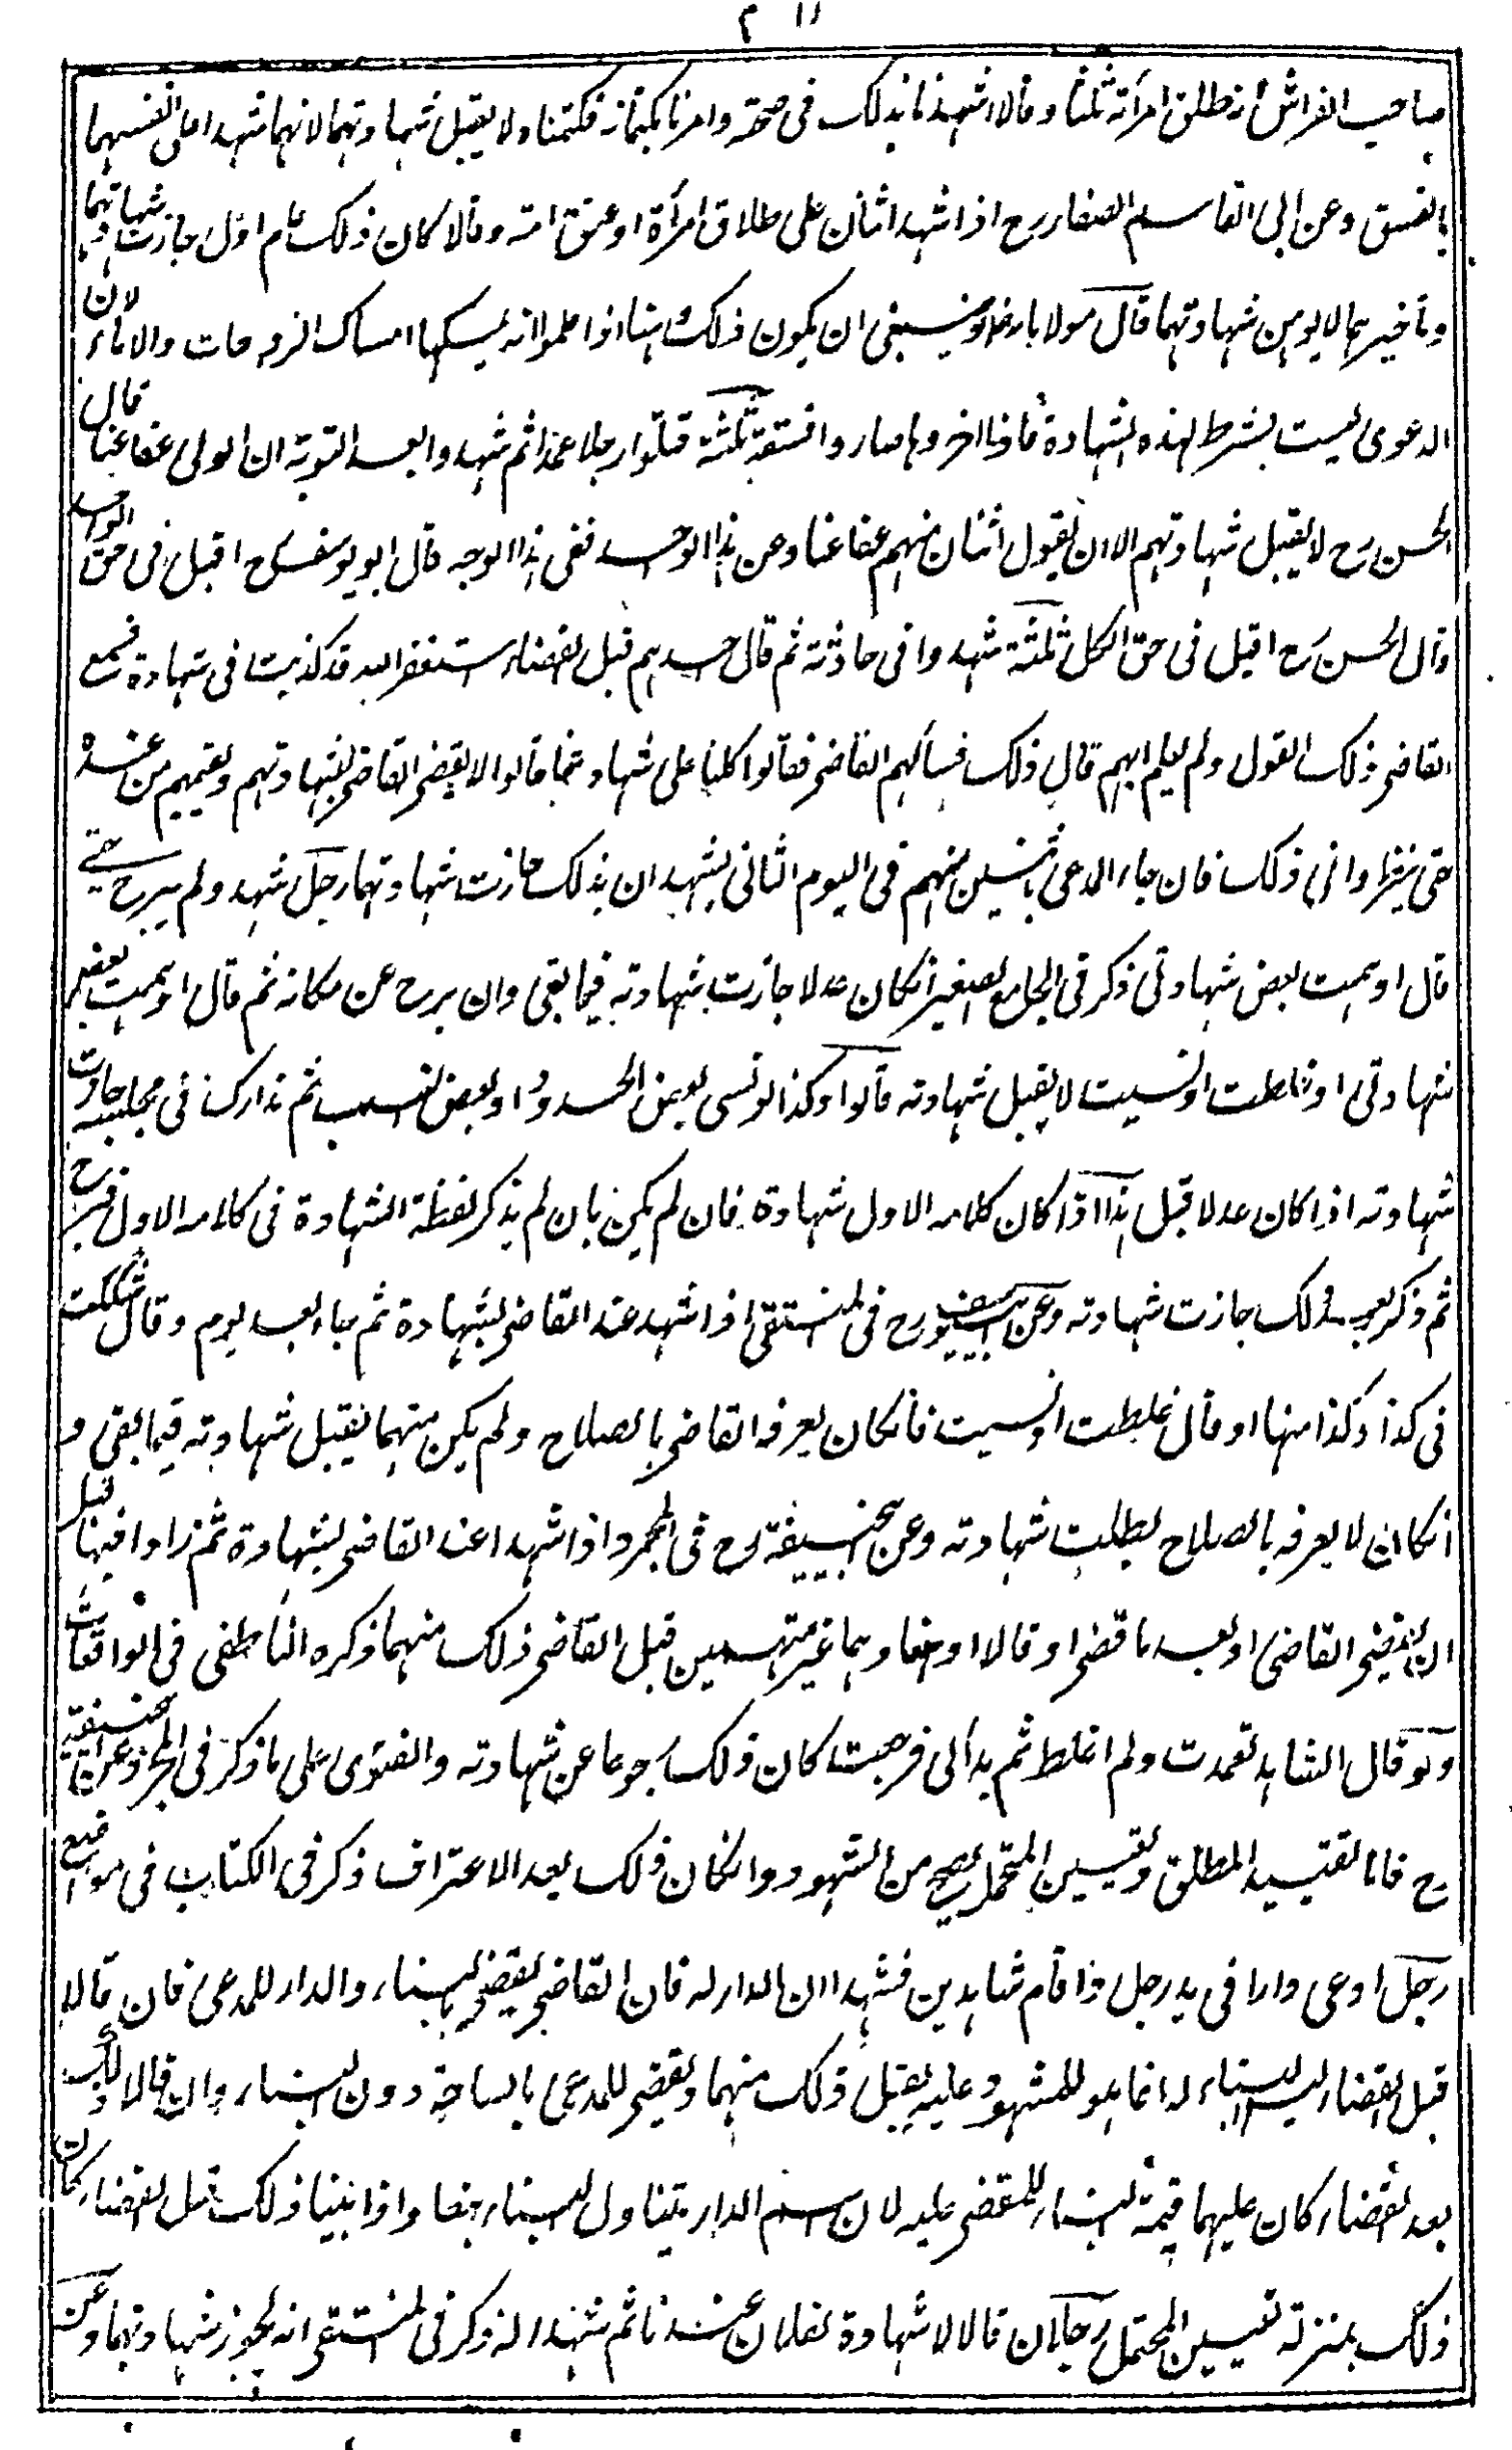 م ١١
صاحب الفراش انه طلق امرأته ثلثا وقالا اشهدنا بذلك في صحته وامرنا بكتمانه فكتمنا ولا يقبل شهادتهما لانهما شهدا على انفسهما
بالفسق وعن ابي القاسم الصفار رح اذا شهد اثنان على طلاق امرأة او عتق امة وقالا كان ذلك عام اول جازت شهادتهما
وتأخيرهما لا يوهن شهادتهما قال مولانا رض وينبغي ان يكون ذلك وهنا اذا علموا انه يمسكها امساك الزوجات والاماء لان
الدعوى ليست بشرط لهذه الشهادة فاذا اخروها صاروا فسقة ثلثة قتلوا رجلا عمدا ثم شهدوا بعد التوبة ان الولي عفا عنا قال
الحسن رح لا يقبل شهادتهم الا ان يقول اثنان منهم عفا عنا وعن هذا الواحد ففي هذا الوجه قال ابو يوسف رح اقبل في حق الواحد
وقال الحسن رح اقبل في حق الكل ثلثة شهدوا في حادثة ثم قال احدهم قبل القضاء استغفر الله قد كذبت في شهادتي فسمع
القاضي ذلك القول ولم يعلم ايهم قال ذلك فسألهم القاضي فقالوا كلنا على شهادتنا قالوا لا يقضي القاضي بشهادتهم ويقيمهم من عنده
حتى ينظروا في ذلك فان جاء المدعي باثنين منهم في اليوم الثاني يشهدان بذلك جازت شهادتهما رجل شهد ولم يبرح حتى
قال اوهمت بعض شهادتي ذكر في الجامع الصغير انكان عدلا جازت شهادته فيما بقي وان برح عن مكانه ثم قال اوهمت بعض
شهادتي او غلطت او نسيت لا يقبل شهادته قالوا وكذا لو نسي بعض الحدود او بعض النسب ثم تدارك في مجلسه جازت
شهادته اذا كان عدلا قيل هذا اذا كان كلامه الاول شهادة فان لم يكن بان لم يذكر لفظة الشهادة في كلامه الاول فبرح
ثم ذكر بعد ذلك جازت شهادته وعن ابي يوسف رح في المنتقى اذا شهد عند القاضي بشهادة ثم جاء بعد يوم وقال شككت
في كذا وكذا منها او قال غلطت او نسيت فانكان يعرفه القاضي بالصلاح ولم يكن متهما يقبل شهادته فيما بقي و
انكان لا يعرفه بالصلاح بطلت شهادته وعن ابي حنيفة رح في المجرد اذا شهدا عند القاضي بشهادة ثم زادا فيها قبل
ان يقضي القاضي او بعد ما قضى او قالا اوهمنا وهما غير متهمين قبل القاضي ذلك منهما ذكره الناطفي في الواقعات
ولو قال الشاهد تعمدت ولم اغلط ثم بدا لي فرجعت كان ذلك رجوعا عن شهادته والفتوى على ما ذكر في المجرد عن ابي حنيفة
رح فاما تقييد المطلق وتعيين المحتمل يصح من الشهود وانكان ذلك بعد الاعتراف ذكر في الكتاب في مواضع
رجل ادعى دارا في يد رجل واقام شاهدين فشهدا ان الدار له فان القاضي يقضي بالبناء والدار للمدعي فان قالا
قبل القضاء ليس البناء له انما هو للمشهود عليه يقبل ذلك منهما ويقضي للمدعي بالساحة دون البناء وان قالا ذلك
بعد القضاء كان عليهما قيمة البناء للمقضي عليه لان اسم الدار يتناول البناء تبعا واذا بينا ذلك قبل القضاء كان
ذلك بمنزلة تعيين المحتمل رجلان قالا لا شهادة لفلان عندنا ثم شهدا له ذكر في المنتقى انه يجوز شهادتهما وعن